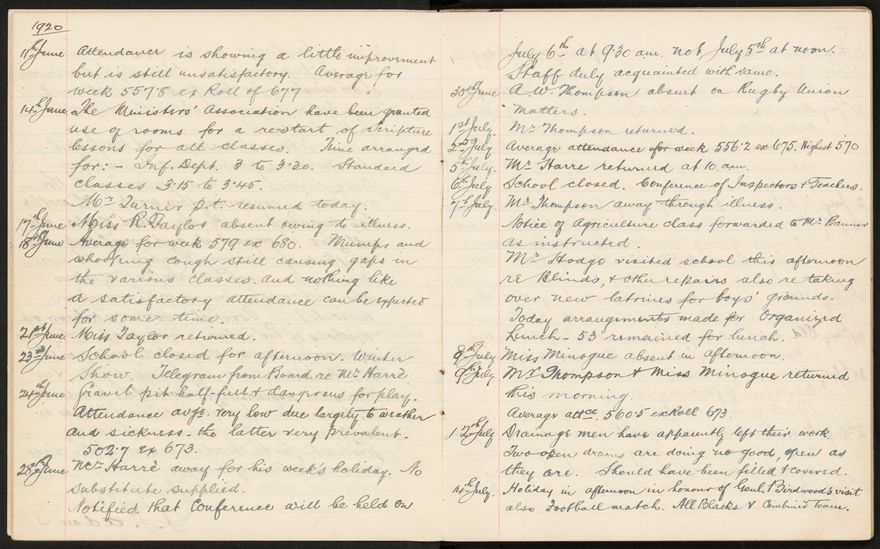 1920
11th June Attendance is showing a little improvement
but is still unsatisfactory. Average for
week 557·8 ex Roll of 677
14th June The Ministers' Association have been granted
use of rooms for a restart of Scripture
lessons for all classes. Time arranged
for:- Inf. Dept. 3 to 3·30. Standard
classes 3·15 to 3·45.
Mr Turner p.t. resumed today.
17th June Miss R. Taylor absent owing to illness.
18th June Average for week 579 ex 680. Mumps and
whooping cough still causing gaps in
the various classes and nothing like
a satisfactory attendance can be expected
for some time.
21st June Miss Taylor returned.
23rd June School closed for afternoon. Winter
Show. Telegram from Board re Mr Harré
24th June Gravel pit half-full & dangerous for play.
Attendance avge. very low due largely to weather
and sickness - the latter very prevalent.
502·7 ex 673.
28th June Mr Harré away for his week's holiday. No
substitute supplied.
Notified that Conference will be held on
July 6th at 9·30 am. not July 5th at noon.
Staff duly acquainted with same.
30th June A. W. Thompson absent on Rugby Union
matters.
1st July. Mr Thompson returned.
2nd July Average attendance for week 556·2 ex 675. Highest 590
5th July. Mr Harre returned at 10 am.
6th July School closed. Conference of Inspectors & Teachers.
7th July. Mr Thompson away through illness.
Notice of Agriculture class forwarded to Mr Banner
as instructed.
Mr Hodge visited school this afternoon
re blinds, & other repairs also re taking
over new latrines for boys' grounds.
Today arrangements made for Organized
Lunch - 53 remained for lunch.
8th July Miss Minogue absent in afternoon.
9th July Mr Thompson & Miss Minogue returned
this morning.
Average attce. 560·5 ex Roll 673.
12th July Drainage men have apparently left their work
Two open drains are doing no good, open as
they are. Should have been filled & covered.
14th July. Holiday in afternoon in honour of Genl. Birdwood's visit
also Football match. All Blacks v Combined Team.